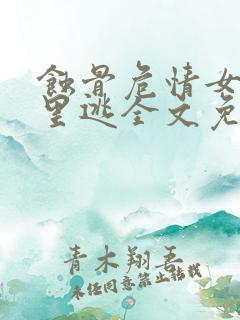 蚀骨危情女
里逃全文免
青木翔吾
未经同意禁止转载